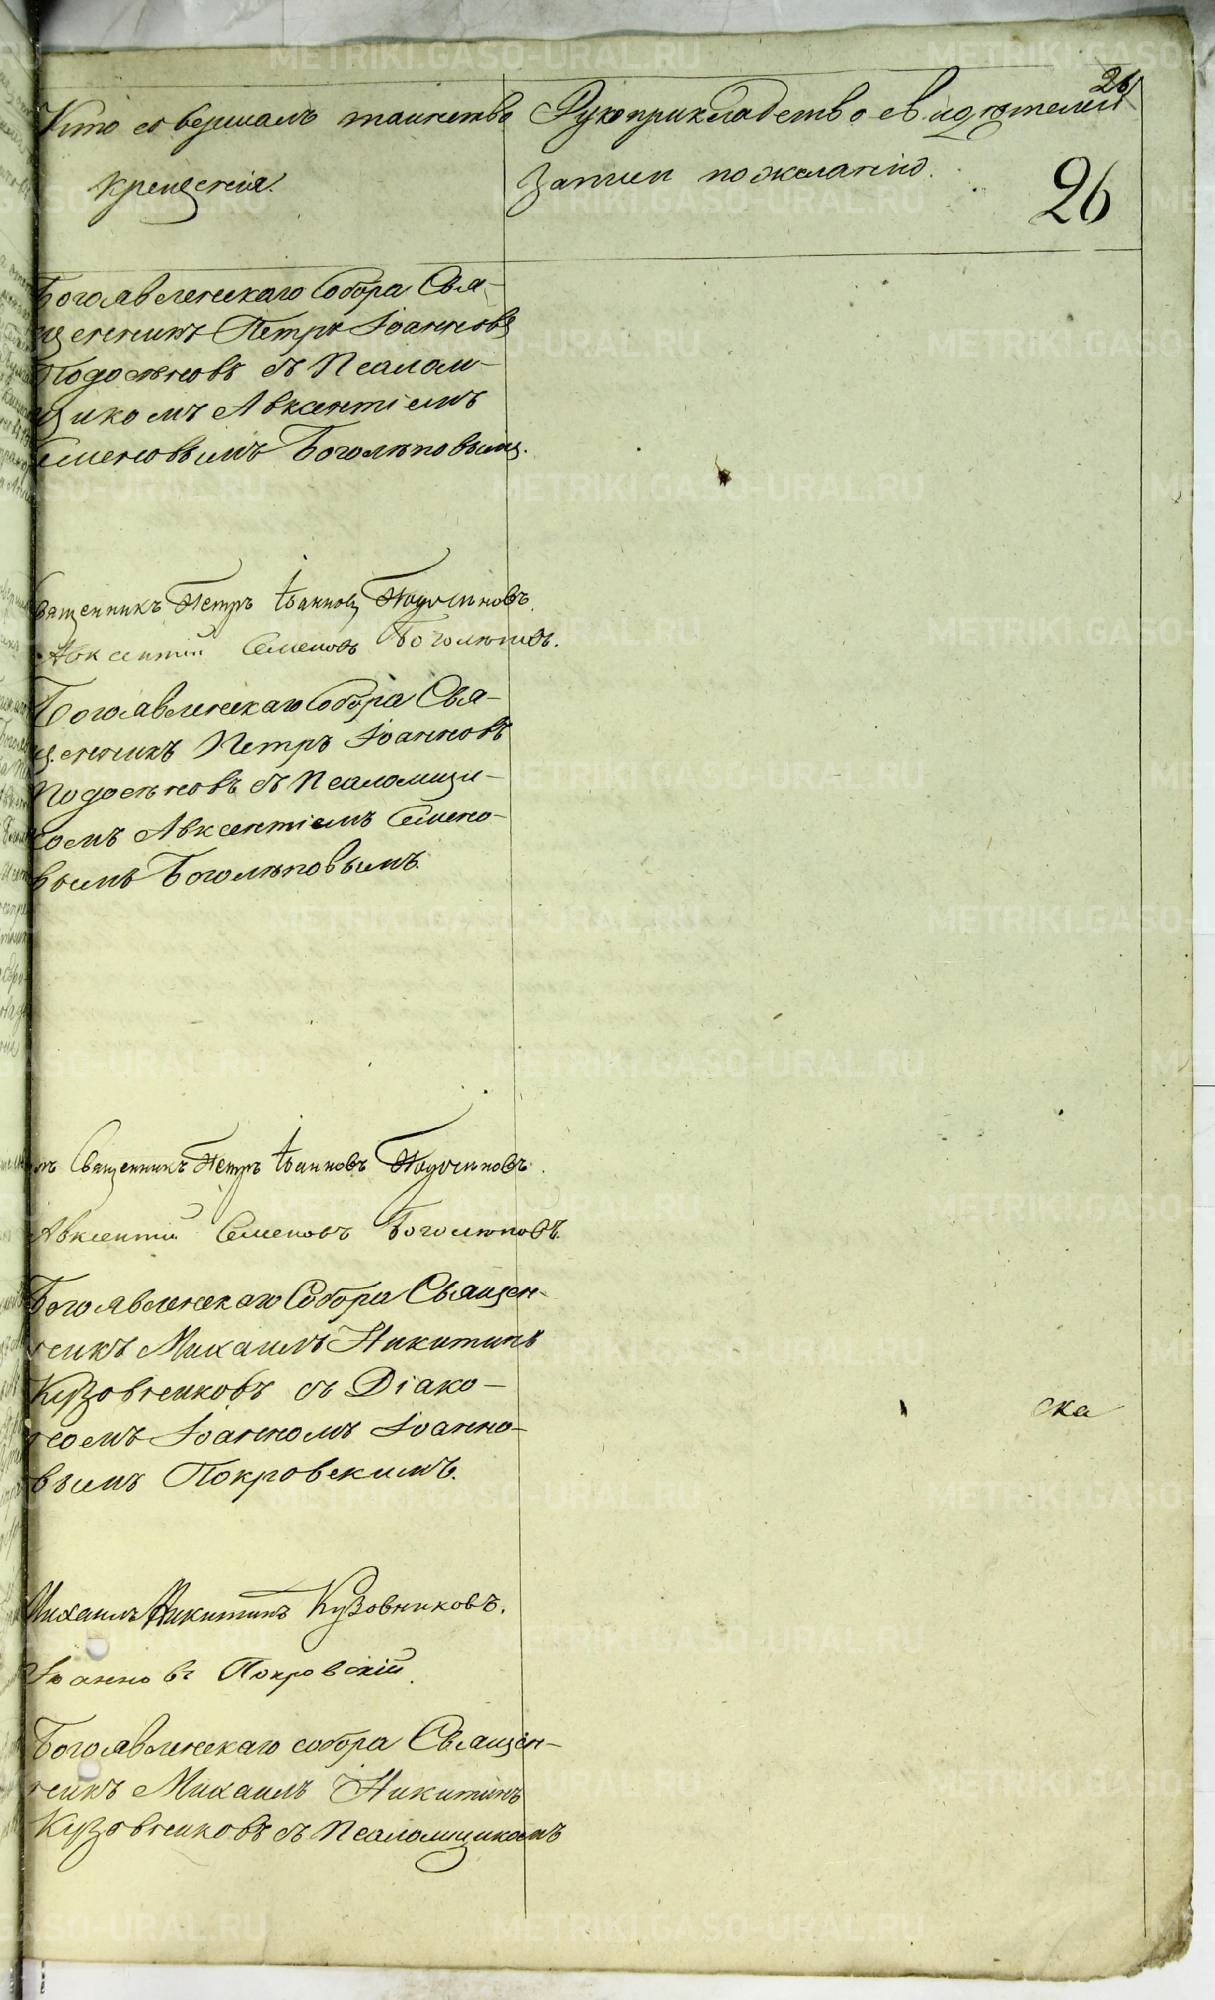 26
Кто совершалъ таинство Рукоприкладство свидѣтелей
крещенія. записи по желанію.
26
Богоявленскаго Собора Свя-
щенникъ Петръ Іоанновъ
Подосеновъ съ Псалом-
щикомъ Авксентіемъ
Семеновымъ Боголѣповымъ.
Священникъ Петръ Іоанновъ
Авксентій Семеновъ Боголѣповъ.
Богоявленскаго Собора Свя-
щенникъ Петръ Іоанновъ
Подосеновъ съ Псаломщи-
комъ Авксентіемъ Семено-
вымъ Боголѣповымъ.
Священникъ Петръ Іоанновъ
Авксентій Семеновъ Боголѣповъ.
Богоявленскаго Собора Священ-
никъ Михаилъ Никитинъ
Кузовниковъ съ Діако-
ска
номъ Іоанномъ Іоанно-
вымъ Покровскимъ.
Михаилъ Никитинъ Кузовниковъ.
Іоанновъ Покровскій.
Богоявленскаго собора Священ-
никъ Михаилъ Никитинъ
Кузовниковъ съ Псаломщикомъ